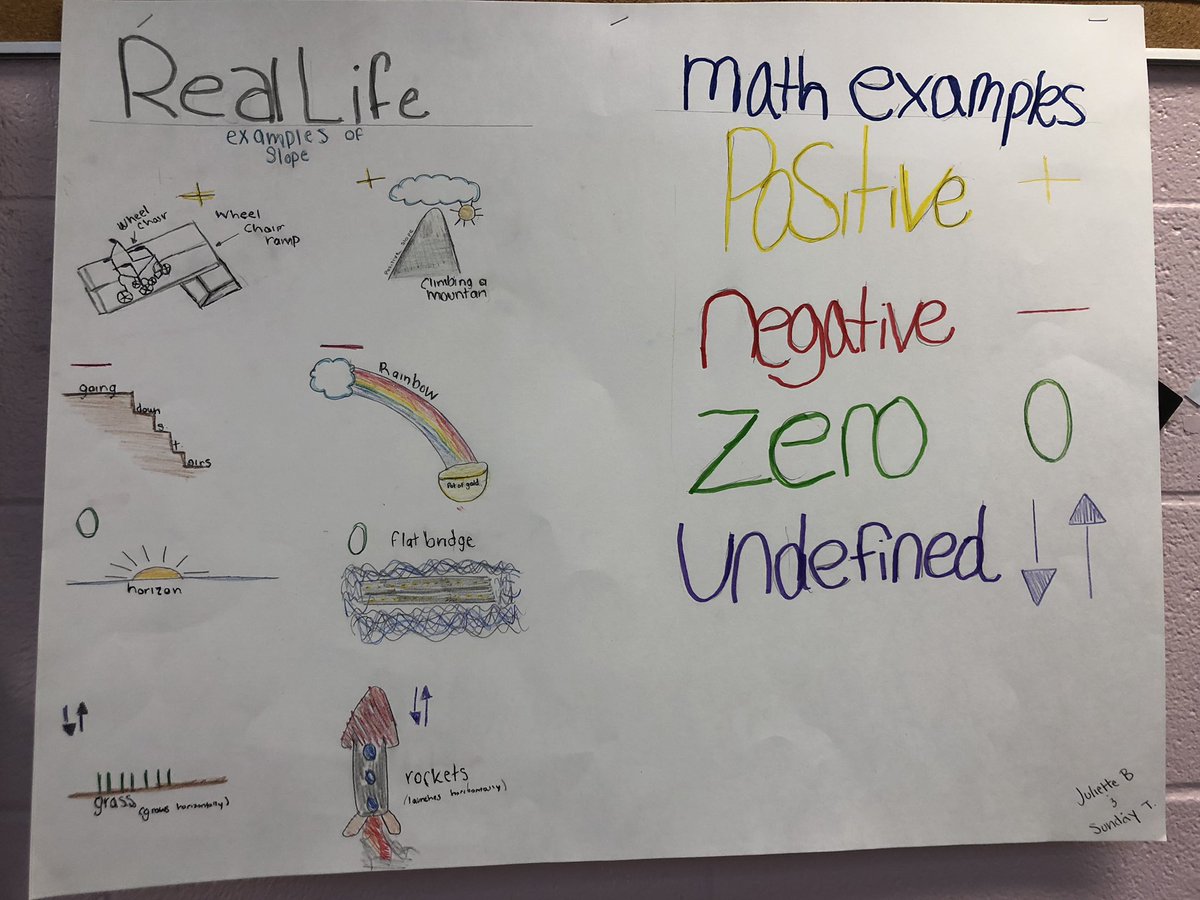 Real Life
examples of
slope
+
wheel
chair
wheel
chair
ramp
+
positive slope
Climbing a
mountan
—
going
down
s
t
airs
—
Rainbow
Pot of gold
0
horizon
0
flat bridge
↓↑
grass
(grows horizontally)
↓↑
rockets
(launches horizontally)
math examples
Positive +
negative —
zero 0
undefined ↓↑
Juliette B
&
Sunday T.